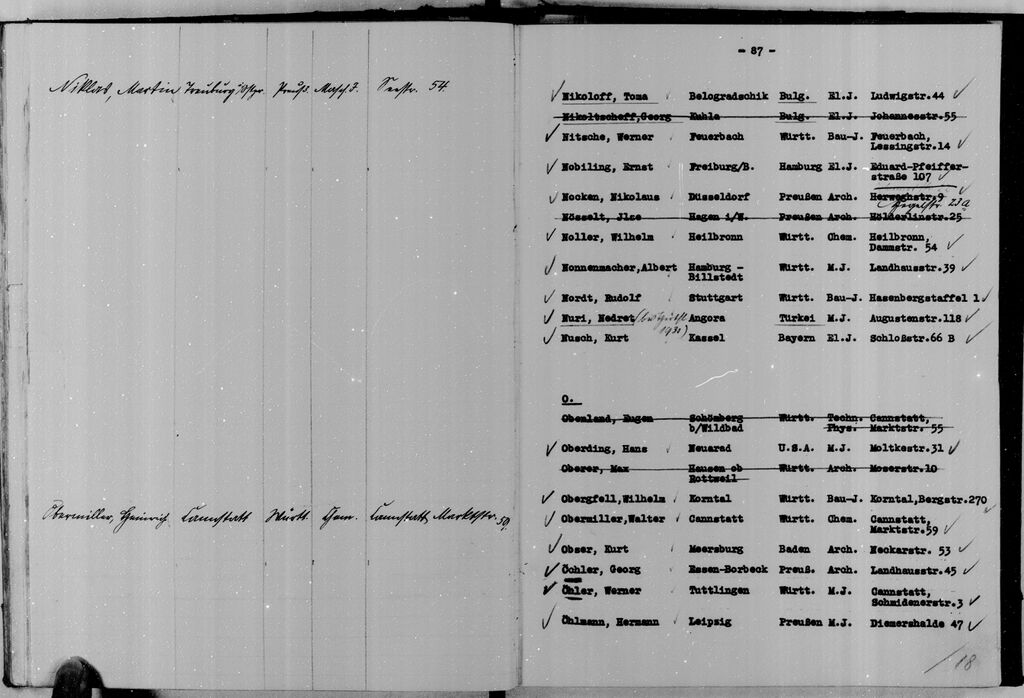 Niklas, Martin Treuburg/Ostpr. Preuß. Masch.J. Seestr. 54.
Obermiller, Heinrich Cannstatt Württ. Chem. Cannstatt, Marktstr. 59.
- 87 -
Nikoloff, Toma Belogradschik Bulg. El.J. Ludwigstr.44
Nikoltscheff,Georg Kuhla Bulg. El.J. Johannesstr.55
Nitsche, Werner Feuerbach Württ. Bau-J. Feuerbach,
Lessingstr.14
Nobiling, Ernst Freiburg/B. Hamburg El.J. Eduard-Pfeiffer-
straße 107
Nocken, Nikolaus Düsseldorf Preußen Arch. Herweghstr.9
23a
Nösselt, Jlse Hagen i/W. Preußen Arch. Hölderlinstr.25
Noller, Wilhelm Heilbronn Württ. Chem. Heilbronn,
Dammstr. 54
Nonnenmacher,Albert Hamburg - Württ. M.J. Landhausstr.39
Billstedt
Nordt, Rudolf Stuttgart Württ. Bau-J. Hasenbergstaffel 1
Nuri, Nedret Angora Türkei M.J. Augustenstr.118
Nusch, Kurt Kassel Bayern El.J. Schloßstr.66 B
O.
Obenland, Eugen Schömberg Württ. Techn. Cannstatt,
b/Wildbad Phys. Marktstr. 55
Oberding, Hans Neuarad U.S.A. M.J. Moltkestr.31
Oberer, Max Hausen ob Württ. Arch. Moserstr.10
Rottweil
Obergfell,Wilhelm Korntal Württ. Bau-J. Korntal,Bergstr.270
Obermiller,Walter Cannstatt Württ. Chem. Cannstatt,
Marktstr.59
Obser, Kurt Meersburg Baden Arch. Neckarstr. 53
Öchler, Georg Essen-Borbeck Preuß. Arch. Landhausstr.45
Öhler, Werner Tuttlingen Württ. M.J. Cannstatt,
Schmidenerstr.3
Öhlmann, Hermann Leipzig Preußen M.J. Diemershalde 47
18